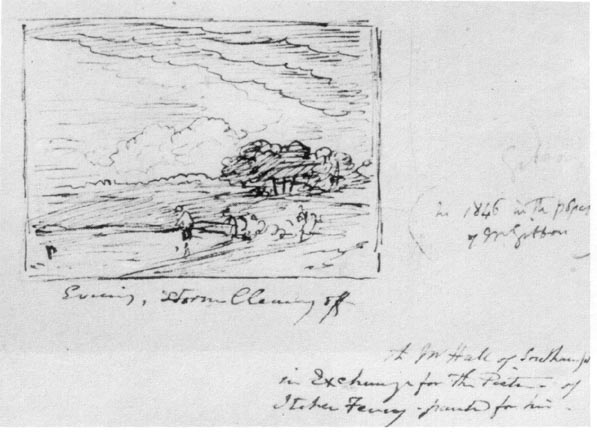 in 1846 in the
of Mr Gibbon
Evening, Storm Clearing off
Mr Hall of
in Exchange for the Picture of
Itchen Ferry painted for him